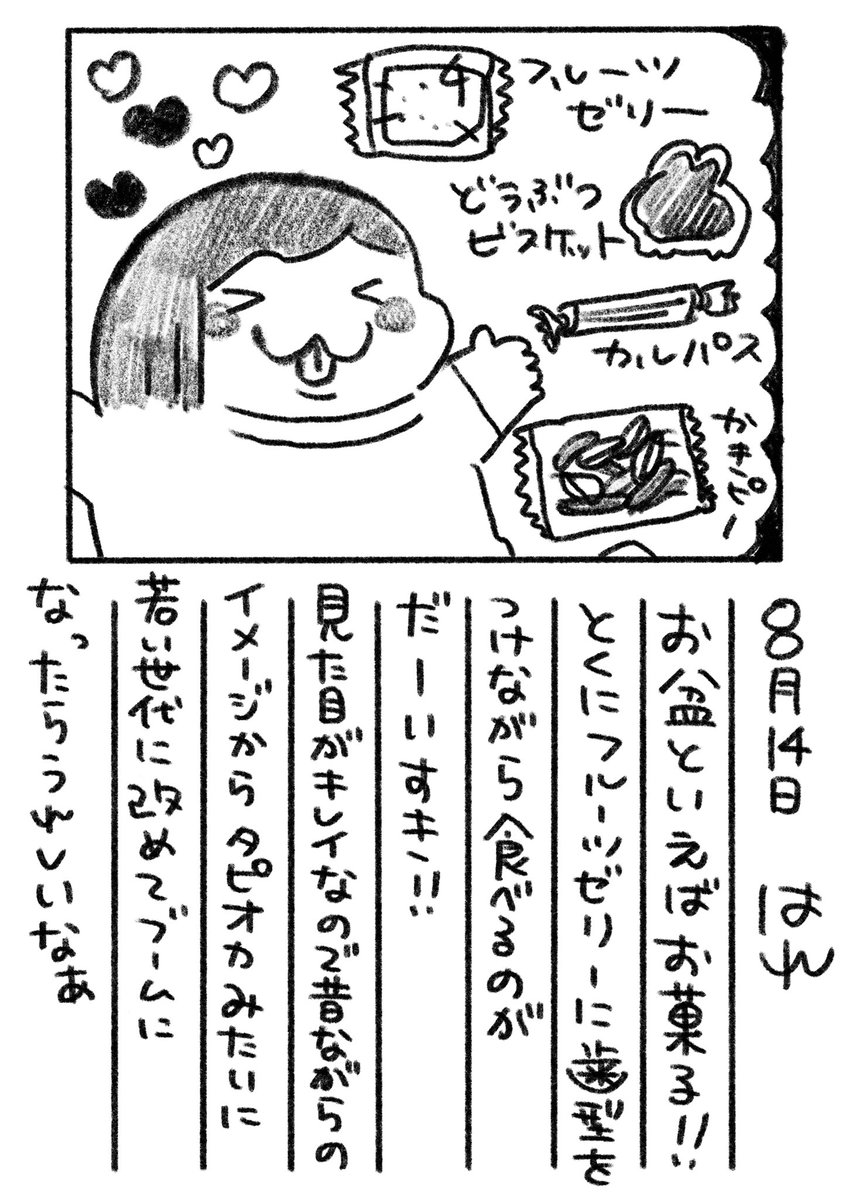 フルーツ
ゼリー
どうぶつ
ビスケット
カルパス
かきピー
8月14日 はれ
お盆といえばお菓子!!
とくにフルーツゼリーに歯型を
つけながら食べるのが
だーいすき!!
見た目がキレイなので昔ながらの
イメージからタピオカみたいに
若い世代に改めてブームに
なったらうれしいなぁ